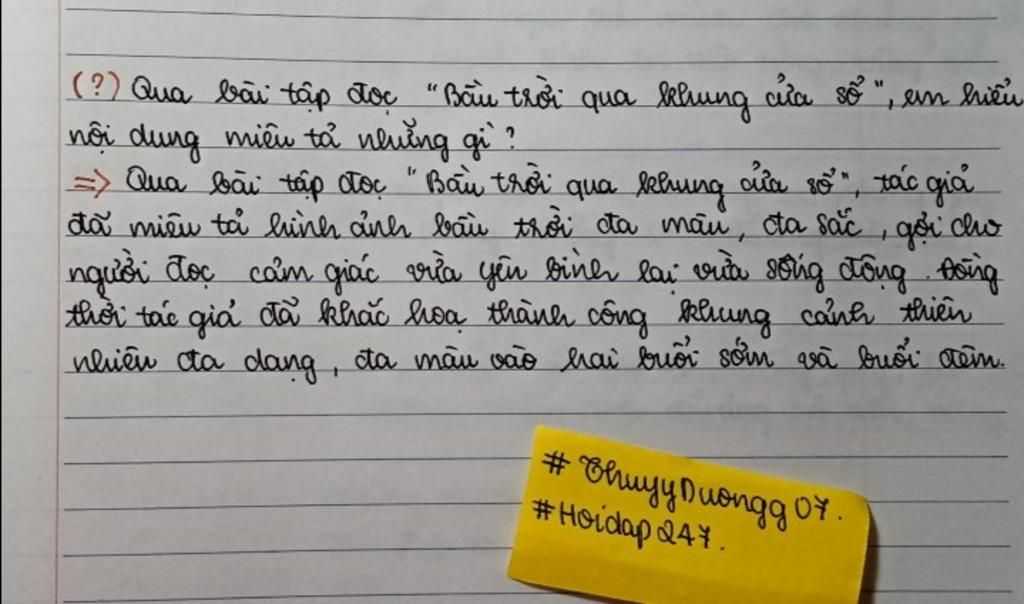 (?) Qua bài tập đọc "Bầu trời qua khung cửa sổ", em hiểu
nội dung miêu tả những gì?
=> Qua bài tập đọc "Bầu trời qua khung cửa sổ", tác giả
đã miêu tả hình ảnh bầu trời đa màu, đa sắc, gợi cho
người đọc cảm giác vừa yên bình lại vừa sống động. Đồng
thời tác giả đã khắc hoạ thành công khung cảnh thiên
nhiên đa dạng, đa màu vào hai buổi sớm và buổi đêm.
# ThuyyDuongg07.
#Hoidap247.